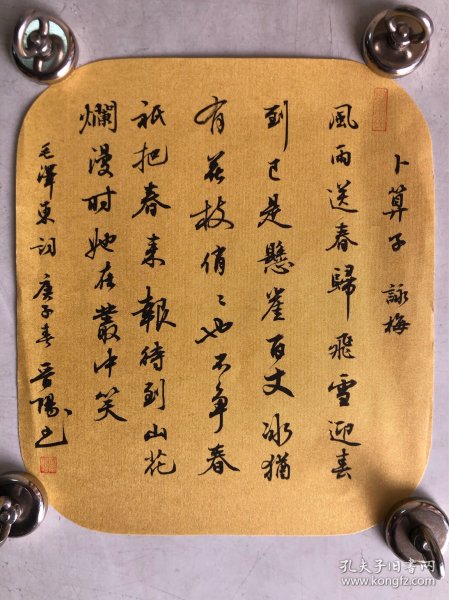 卜算子 詠梅
風雨送春歸飛雪迎春
到已是懸崖百丈冰猶
有花枝俏俏也不争春
祇把春来報待到山花
爛漫时她在叢中笑
毛澤东词 庚子春 晋陽书
孔夫子旧书网
www.kongfz.com